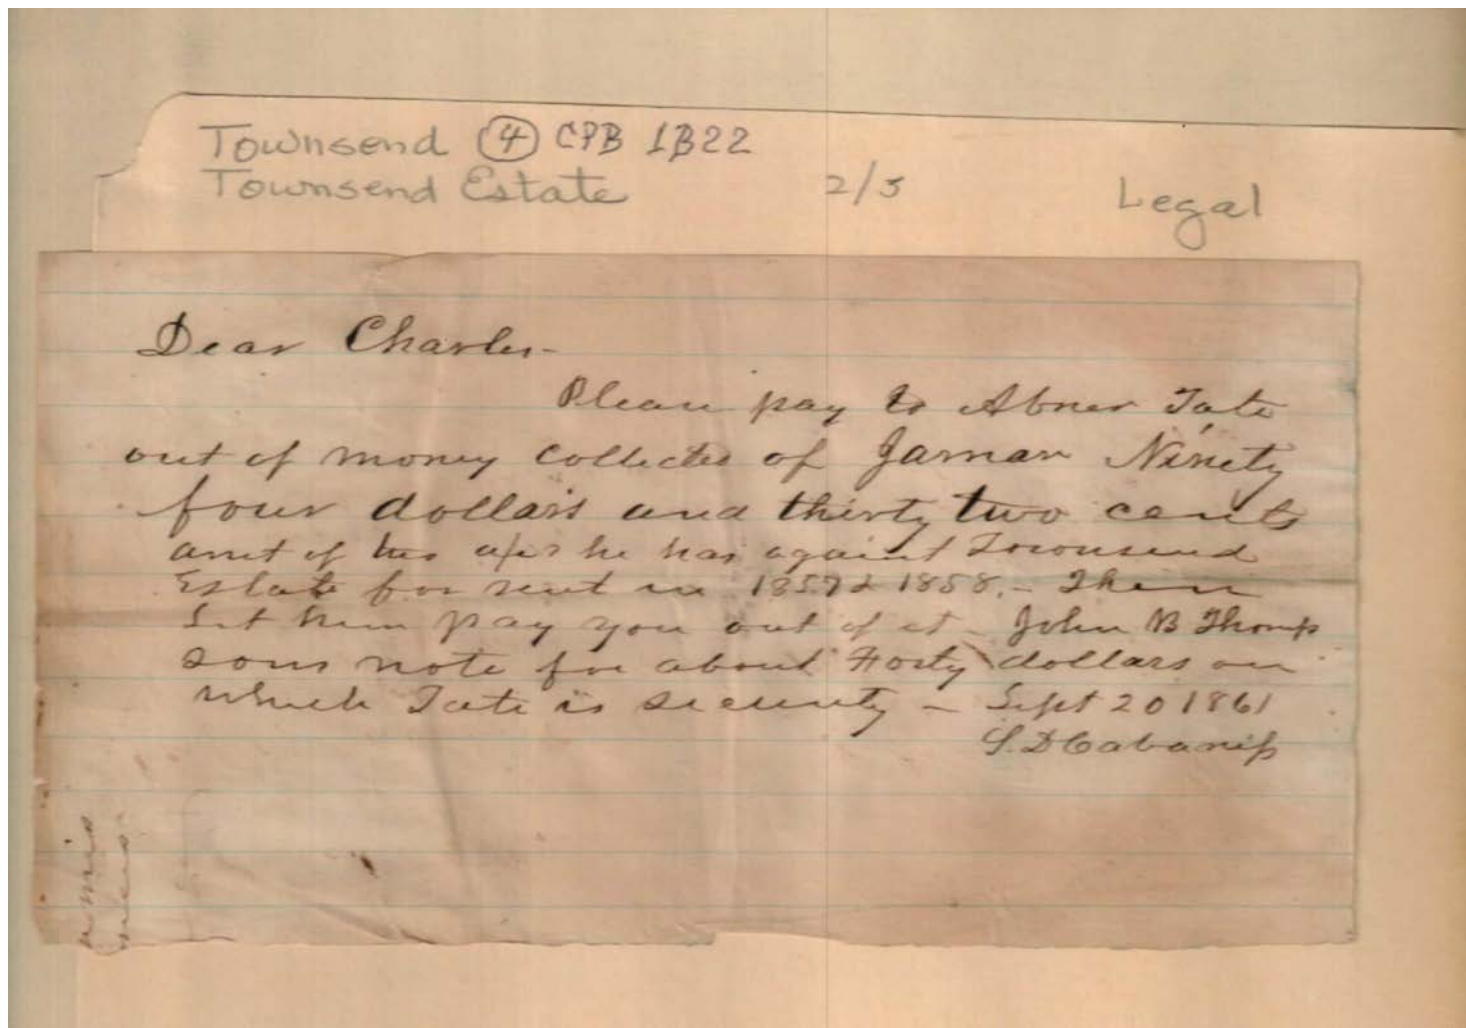 Townsend ④ CPB 1B22
Townsend Estate 2/3 Legal
Dear Charles-
Please pay to Abner Tate
out of money collected of Jamar Ninety
four dollars and thirty two cents
amt of his a/c he has against Townsend
Estate for rent in 1857 & 1858. - Then
Let him pay you out of it - John B Thomp
sons note for about Forty dollars on
which Tate is security - Sept 20 1861
S. D Cabaniss